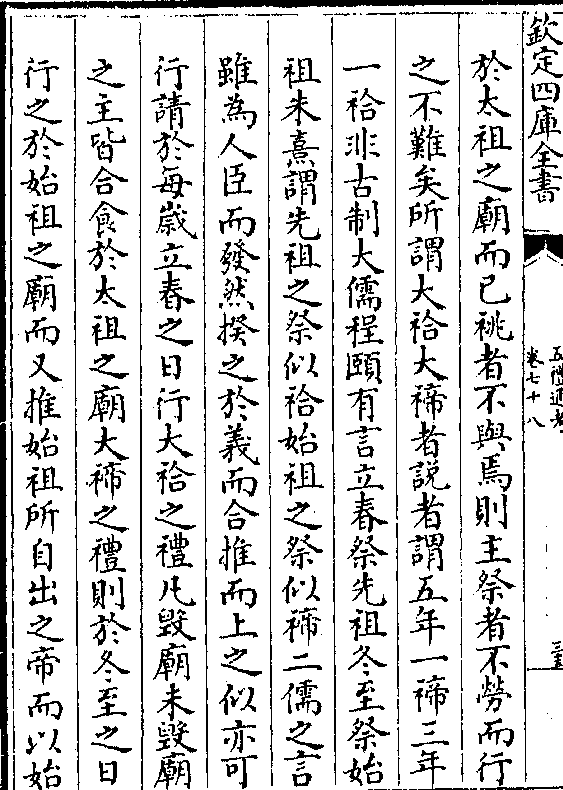 欽定四庫全書
五禮通考
卷七十八
於太祖之廟而已祧者不與焉則主祭者不勞而行
之不難矣所謂大祫大禘者說者謂五年一禘三年
一祫非古制大儒程頤有言立春祭先祖冬至祭始
祖朱熹謂先祖之祭似祫始祖之祭似禘二儒之言
雖為人臣而發然揆之於義而合推而上之似亦可
行請於每嵗立春之日行大祫之禮凡毀廟未毀廟
之主皆合食於太祖之廟大禘之禮則於冬至之日
行之於始祖之廟而又推始祖所自出之帝而以始